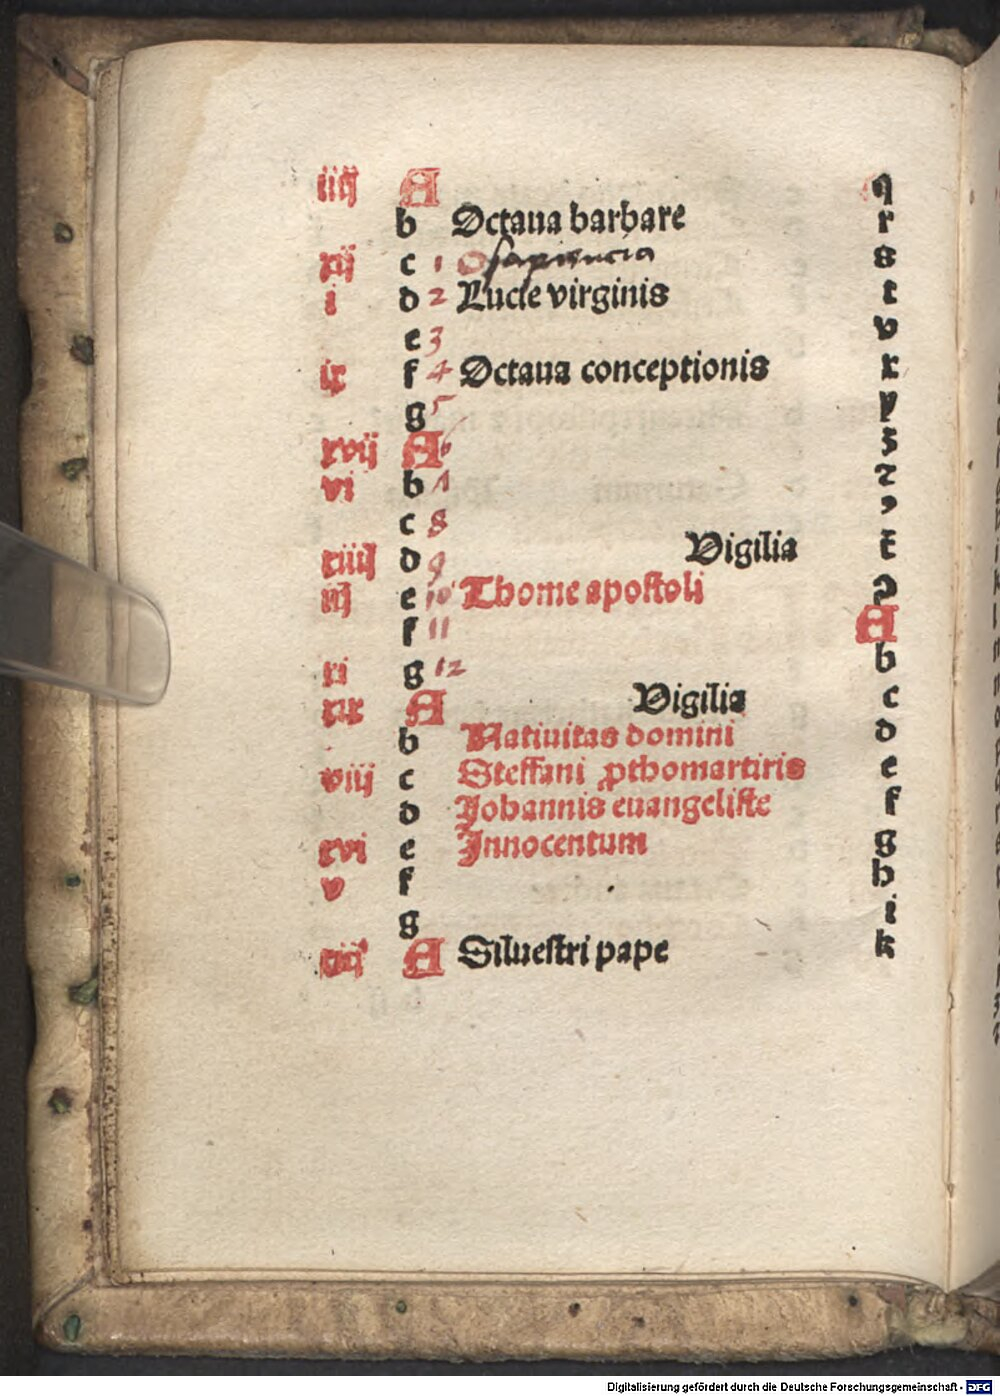 iiij A q
b Octaua barbare r
xij c 1 O sapiencia s
i d 2 Lucie virginis t
e 3 v
ix f 4 Octaua conceptionis x
g 5 y
xvij A 6 z
vi b Λ
c 8 ꝯ
xiiij d 9 Vigilia
iij e 10 Thome apostoli
f 11 A
xi g 12 b
xix A Vigilia c
b Natiuitas domini d
viij c Steffani ꝓthomartiris e
d Johannis euangeliste f
xvi e Innocentum g
v f h
g i
xiij A Siluestri pape k
Digitalisierung gefördert durch die Deutsche Forschungsgemeinschaft - DFG